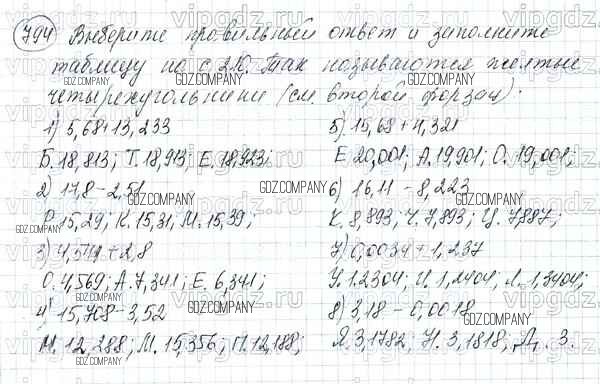 794 Выберите правильный ответ и заполните
таблицу на с 210. Так называются желтые
четырехугольники (см. второй форзац).
1) 5,68+13,233
Б.18,813; Т.18,913; Е.18,923;
2) 17,8-2,51
Р.15,29; К.15,31; М.15,39;
3) 4,541+2,8
О.4,569; А.7,341; Е.6,341;
4) 15,708-3,52
М.12,288; М.15,356; П.12,188;
5) 15,68+4,321
Е 20,001; А.19,901; О.19,001;
6) 16,11-8,223
К.8,893; Ч.7,893; Ц.7,887;
7) 0,0034+1,237
У.1.2304; И.1,2404; Л.1,3404;
8) 3,18-0,0018
Я.3,1782; Н.3,1818; Д. 3.
GDZ.COMPANY
vipgdz.ru